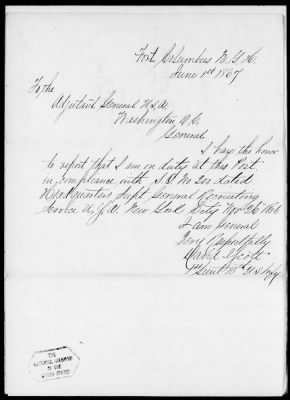 Fort Columbus N.Y.H.
June 1st 1867
To the
Adjutant General U.S.A.
Washington D.C.
General
I have the honor
to report that I am on duty at this Post
in compliance with S.O. No 200 dated
Headquarters Supt General Recruiting
Service U.S.A. New York City Nov 26 1866
I am General
Very Respectfully
David Scott
1st Lieut U.S. Army
THE
NATIONAL ARCHIVES
OF THE
UNITED STATES